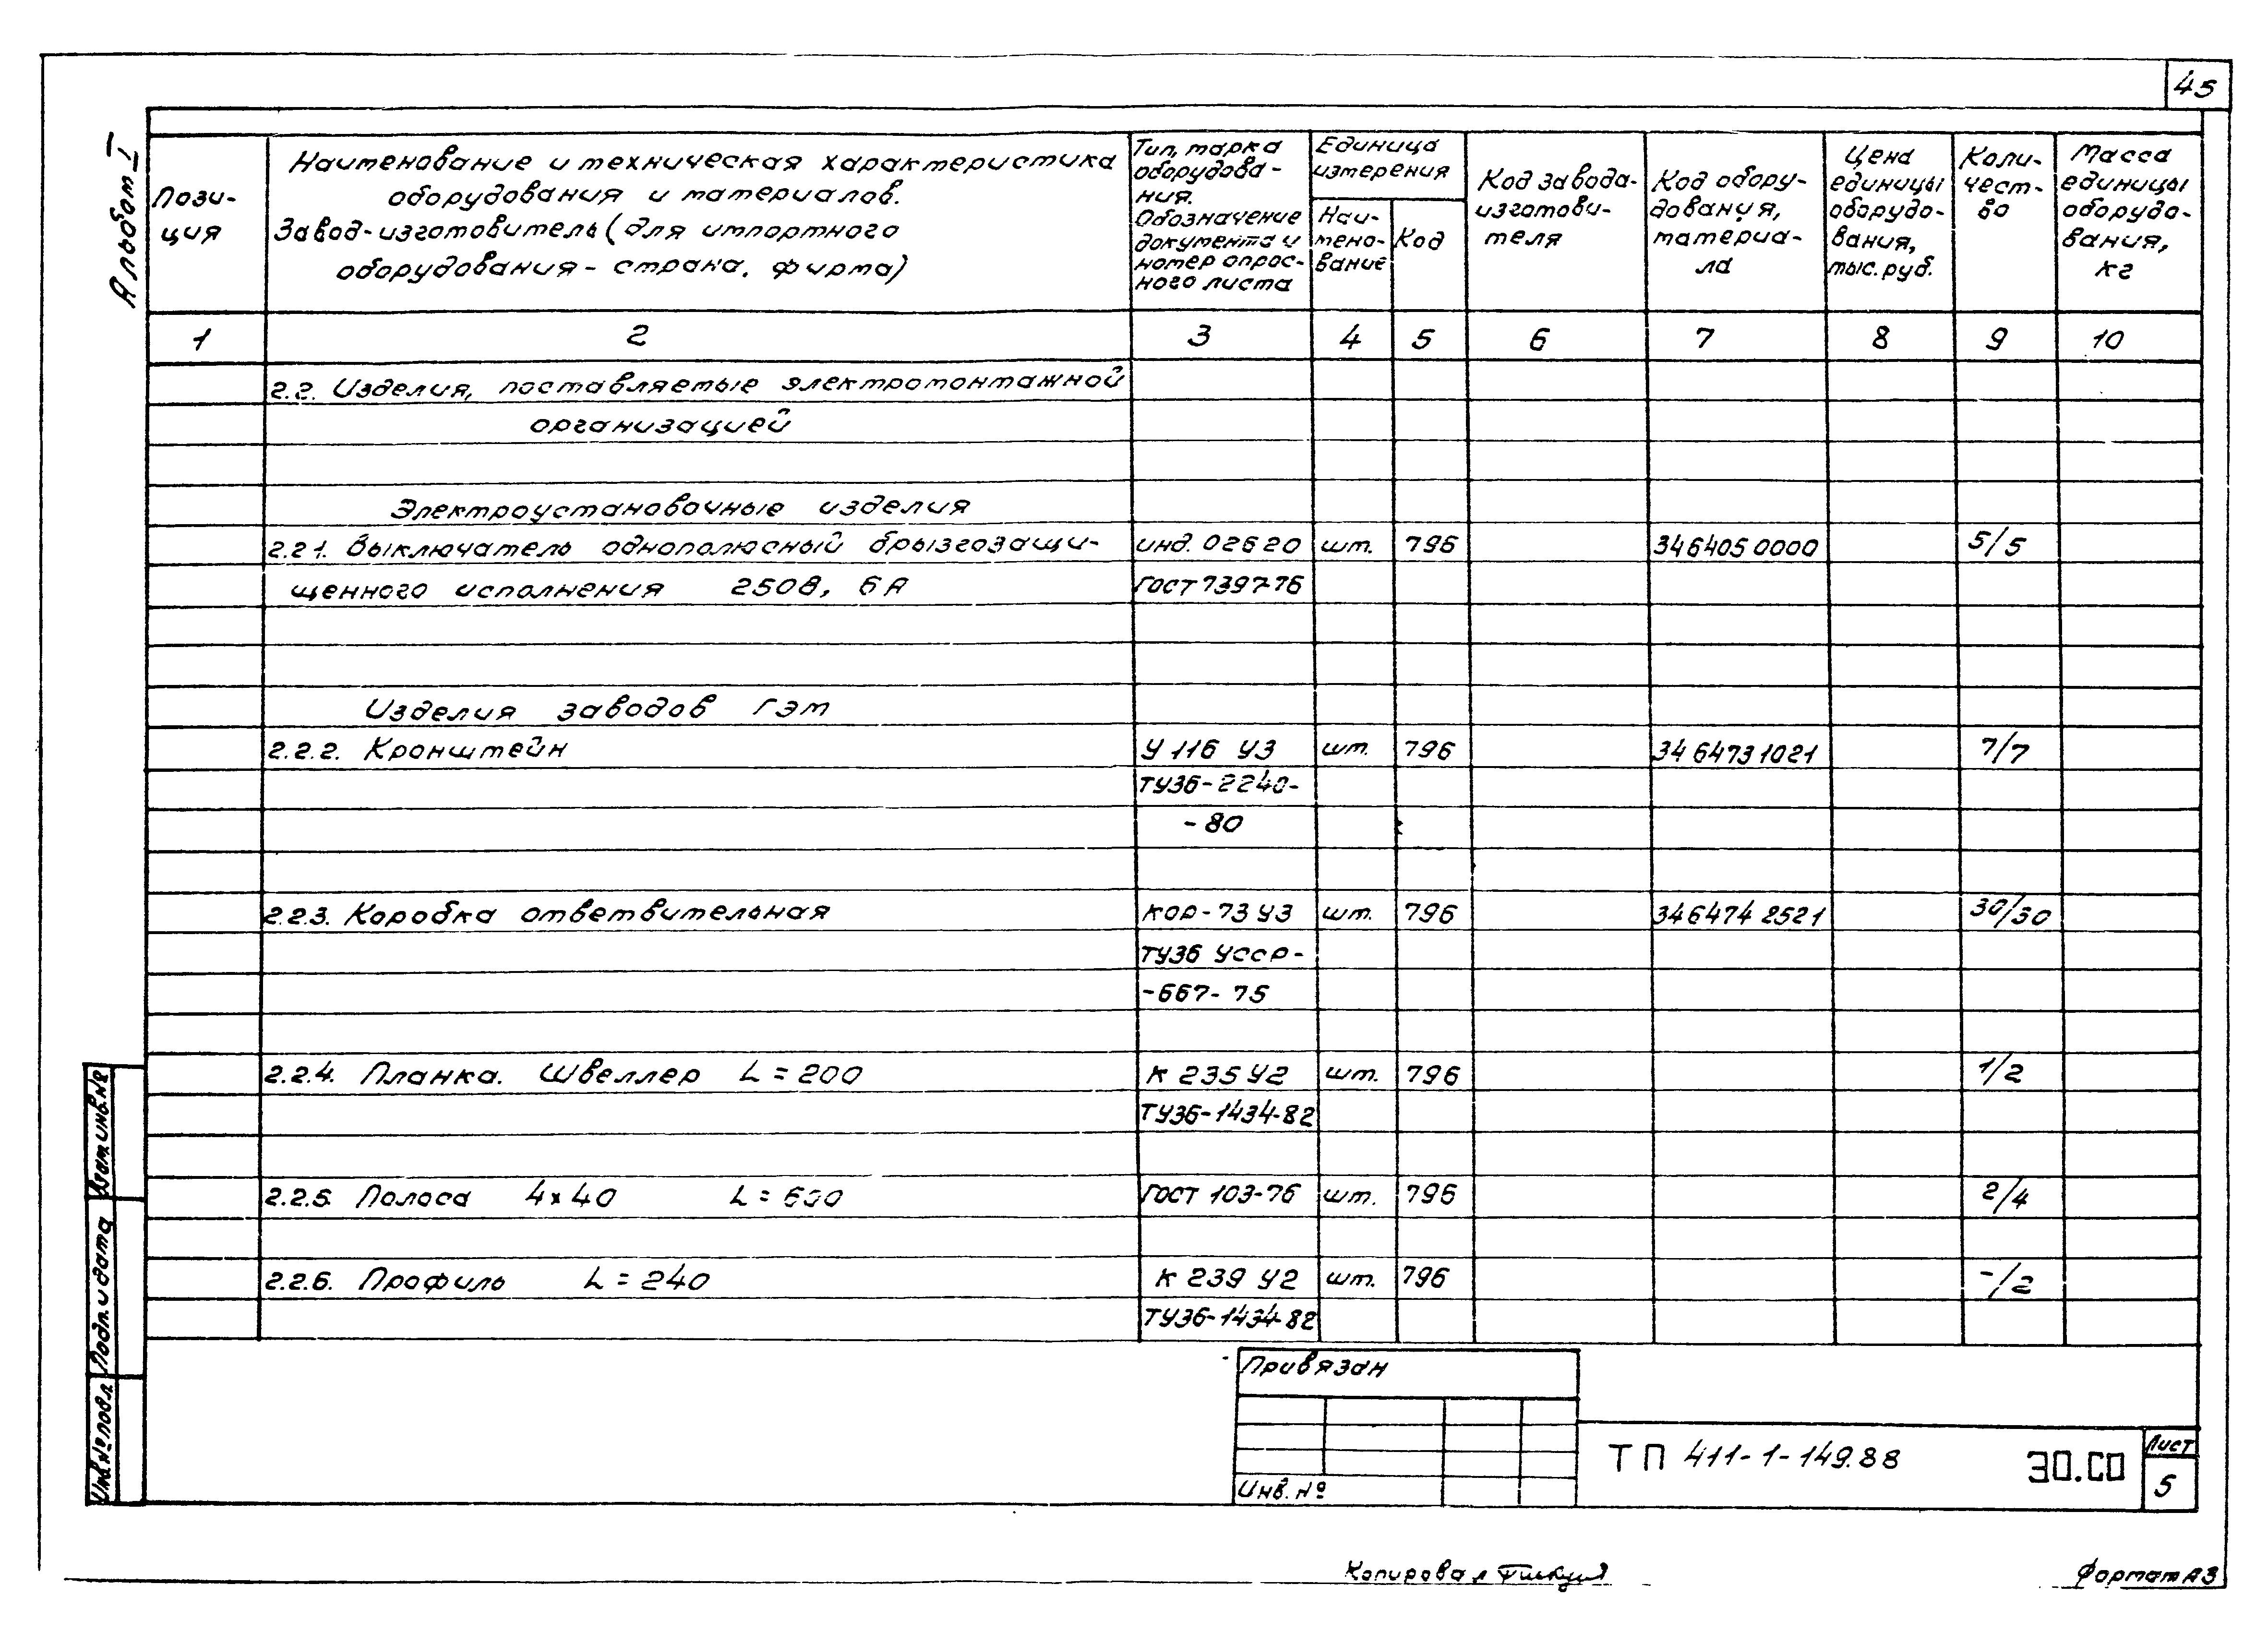 45
Альбом I
Пози-
ция
Наименование и техническая характеристика
оборудования и материалов.
Завод-изготовитель (для импортного
оборудования - страна, фирма)
Тип, марка
оборудова-
ния.
Обозначение
документа и
номер опрос-
ного листа
Единица
измерения
Наи-
мено-
вание
Код
Код завода-
изготови-
теля
Код обору-
дования,
материа-
ла
Цена
единицы
оборудо-
вания,
тыс. руб.
Коли-
чест-
во
Масса
единицы
оборудо-
вания,
кг
1 2 3 4 5 6 7 8 9 10
2.2. Изделия, поставляемые электромонтажной
организацией
Электроустановочные изделия
2.2 1. Выключатель однополюсный брызгозащи- инд. 02620 шт. 796 3464050000 5/5
щенного исполнения 250В, 6А ГОСТ 7397-76
Изделия заводов ГЭМ
2.2.2. Кронштейн У 116 У3 шт. 796 3464731021 7/7
ТУ36-2240-
-80
2.2.3. Коробка ответвительная КОР-73 У3 шт. 796 3464742521 30/30
ТУ36 УССР-
-667-75
2.2.4. Планка. Швеллер L = 200 К 235 У2 шт. 796 1/2
ТУ36-1434-82
2.2.5. Полоса 4х40 L = 600 ГОСТ 103-76 шт. 796 2/4
2.2.6. Профиль L = 240 К 239 У2 шт. 796 -/2
ТУ36-1434-82
Взам.инв.№
Подп. и дата
Инв.№ подл.
Привязан
Инв. №
ТП 411-1-149.88 ЭО.СО
Лист
5
Копировал
Формат А3